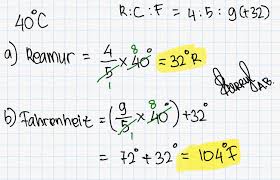 40°C
R:C:F = 4:5:9(+32)
a) Reamur = 4/5 × 40° = 32°R
1 8
b) Fahrenheit = (9/5 × 40°) + 32°
1 8
= 72° + 32° = 104°F
A.B.